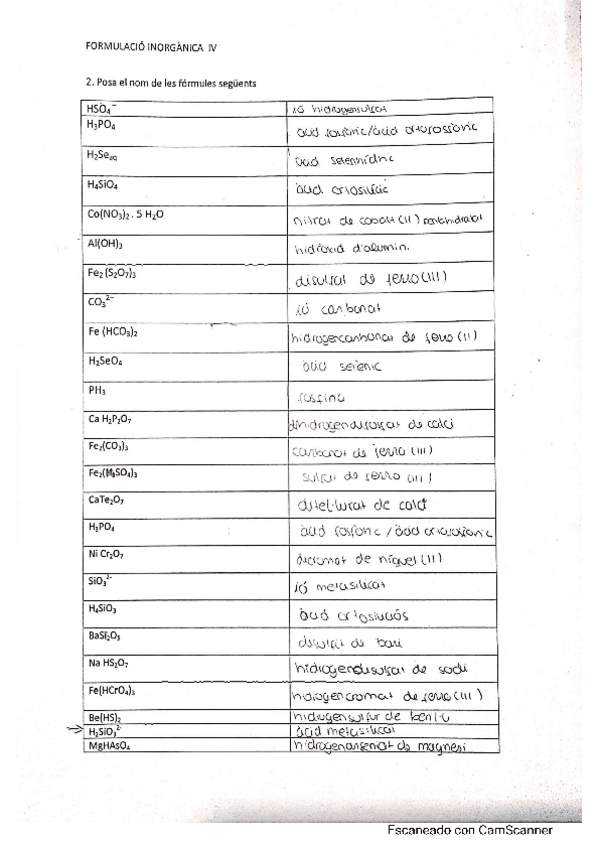 FORMULACIÓ INORGÀNICA IV
2. Posa el nom de les fórmules següents
HSO₄⁻ ió hidrogensulfat
H₃PO₄ àcid fosfòric/àcid ortofosfòric
H₂Se aq àcid selenhídric
H₄SiO₄ àcid ortosilícic
Co(NO₃)₂ . 5 H₂O nitrat de cobalt (II) pentahidratat
Al(OH)₃ hidròxid d'alumini.
Fe₂ (S₂O₇)₃ disulfat de ferro (III)
CO₃²⁻ ió carbonat
Fe (HCO₃)₂ hidrogencarbonat de ferro (II)
H₂SeO₄ àcid selènic
PH₃ fosfina
Ca H₂P₂O₇ dihidrogendifosfat de calci
Fe₂(CO₃)₃ carbonat de ferro (III)
Fe₂(SO₄)₃ sulfat de ferro (III)
CaTe₂O₇ ditel·lurat de calci
H₃PO₄ àcid fosfòric / àcid ortofosfòric
Ni Cr₂O₇ dicromat de níquel (II)
SiO₃²⁻ ió metasilicat
H₄SiO₃ àcid ortosilicós
BaSi₂O₅ disilicat de bari
Na HS₂O₇ hidrogendisulfat de sodi
Fe(HCrO₄)₃ hidrogencromat de ferro (III)
Be(HS)₂ hidrogensulfur de beril·li
H₂SiO₃²⁻ àcid metasilicat
MgHAsO₄ hidrogenarsenat de magnesi
Escaneado con CamScanner